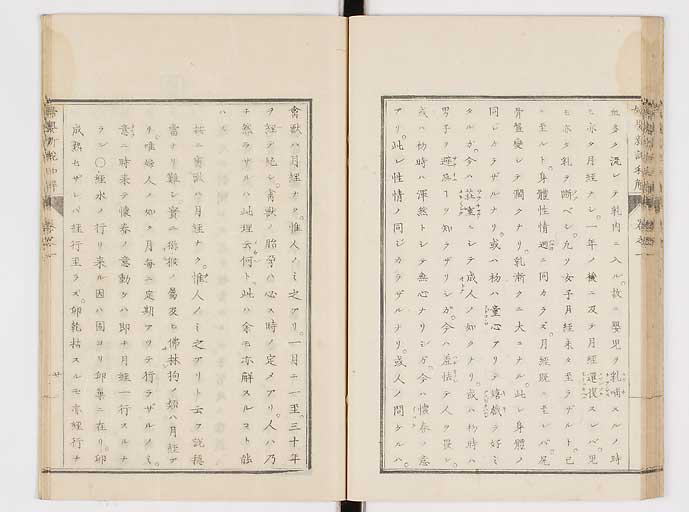 血多ク流レテ乳肉ニ入ル。故ニ嬰児ヲ乳哺スルノ時
ハ亦タ月経ナシ。一年ノ後ニ及テ月経還復スレバ。児
モ亦タ乳ヲ断ベシ。凡ソ女子月経未タ至ラザルト。已
ニ至ルト。身體性情迥ニ同カラズ。月経既ニ至レバ。尻
骨盤變シテ濶クナリ。乳漸クニ大ニナル。此レ身體ノ
同ジカラザルナリ。或ハ杨ハ童心アリテ嬉戯ヲ好ミ
タルガ。今ハ荘重ニシテ成人ノ如クナリ。或ハ杨時ハ
男子ヲ避ルヿヲ知ラザリシガ。今ハ羞怯テ人ヲ畏レ。
或ハ杨時ハ渾然トシテ無心ナリシガ。今ハ懐春ノ意
アリ。此レ性情ノ同ジカラザルナリ。或人ノ問ケルハ。
禽獣ハ月経ナク。惟人ノミ之アリ。一月ニ一至。三十年
ヲ経テ絶シ。禽獣ノ胎孕ハ必ス時ノ定メアリ。人ハ乃
チ然ラザルハ。此理云何ト。此ハ余モ亦解スルヿ能
ハズ
按ニ禽獣ハ月経ナク。惟人ノミ之アリト云ク説穏
當ナリ難シ。實ニ猕猴ノ屬及ヒ佛林狗ノ類ハ月経ア
リ。唯婦人ノ如ク月毎ニ定期アリテ行ラザルノミ。
意ニ時来テ懐春ノ意動クハ即チ月経一行スルナ
ラン〇経水ノ行リ来ル因ハ固ヨリ卵巣ニ在リ。卵
成熟セザレバ経行至ラズ。卵乾枯スルモ亦経行ナ
廿